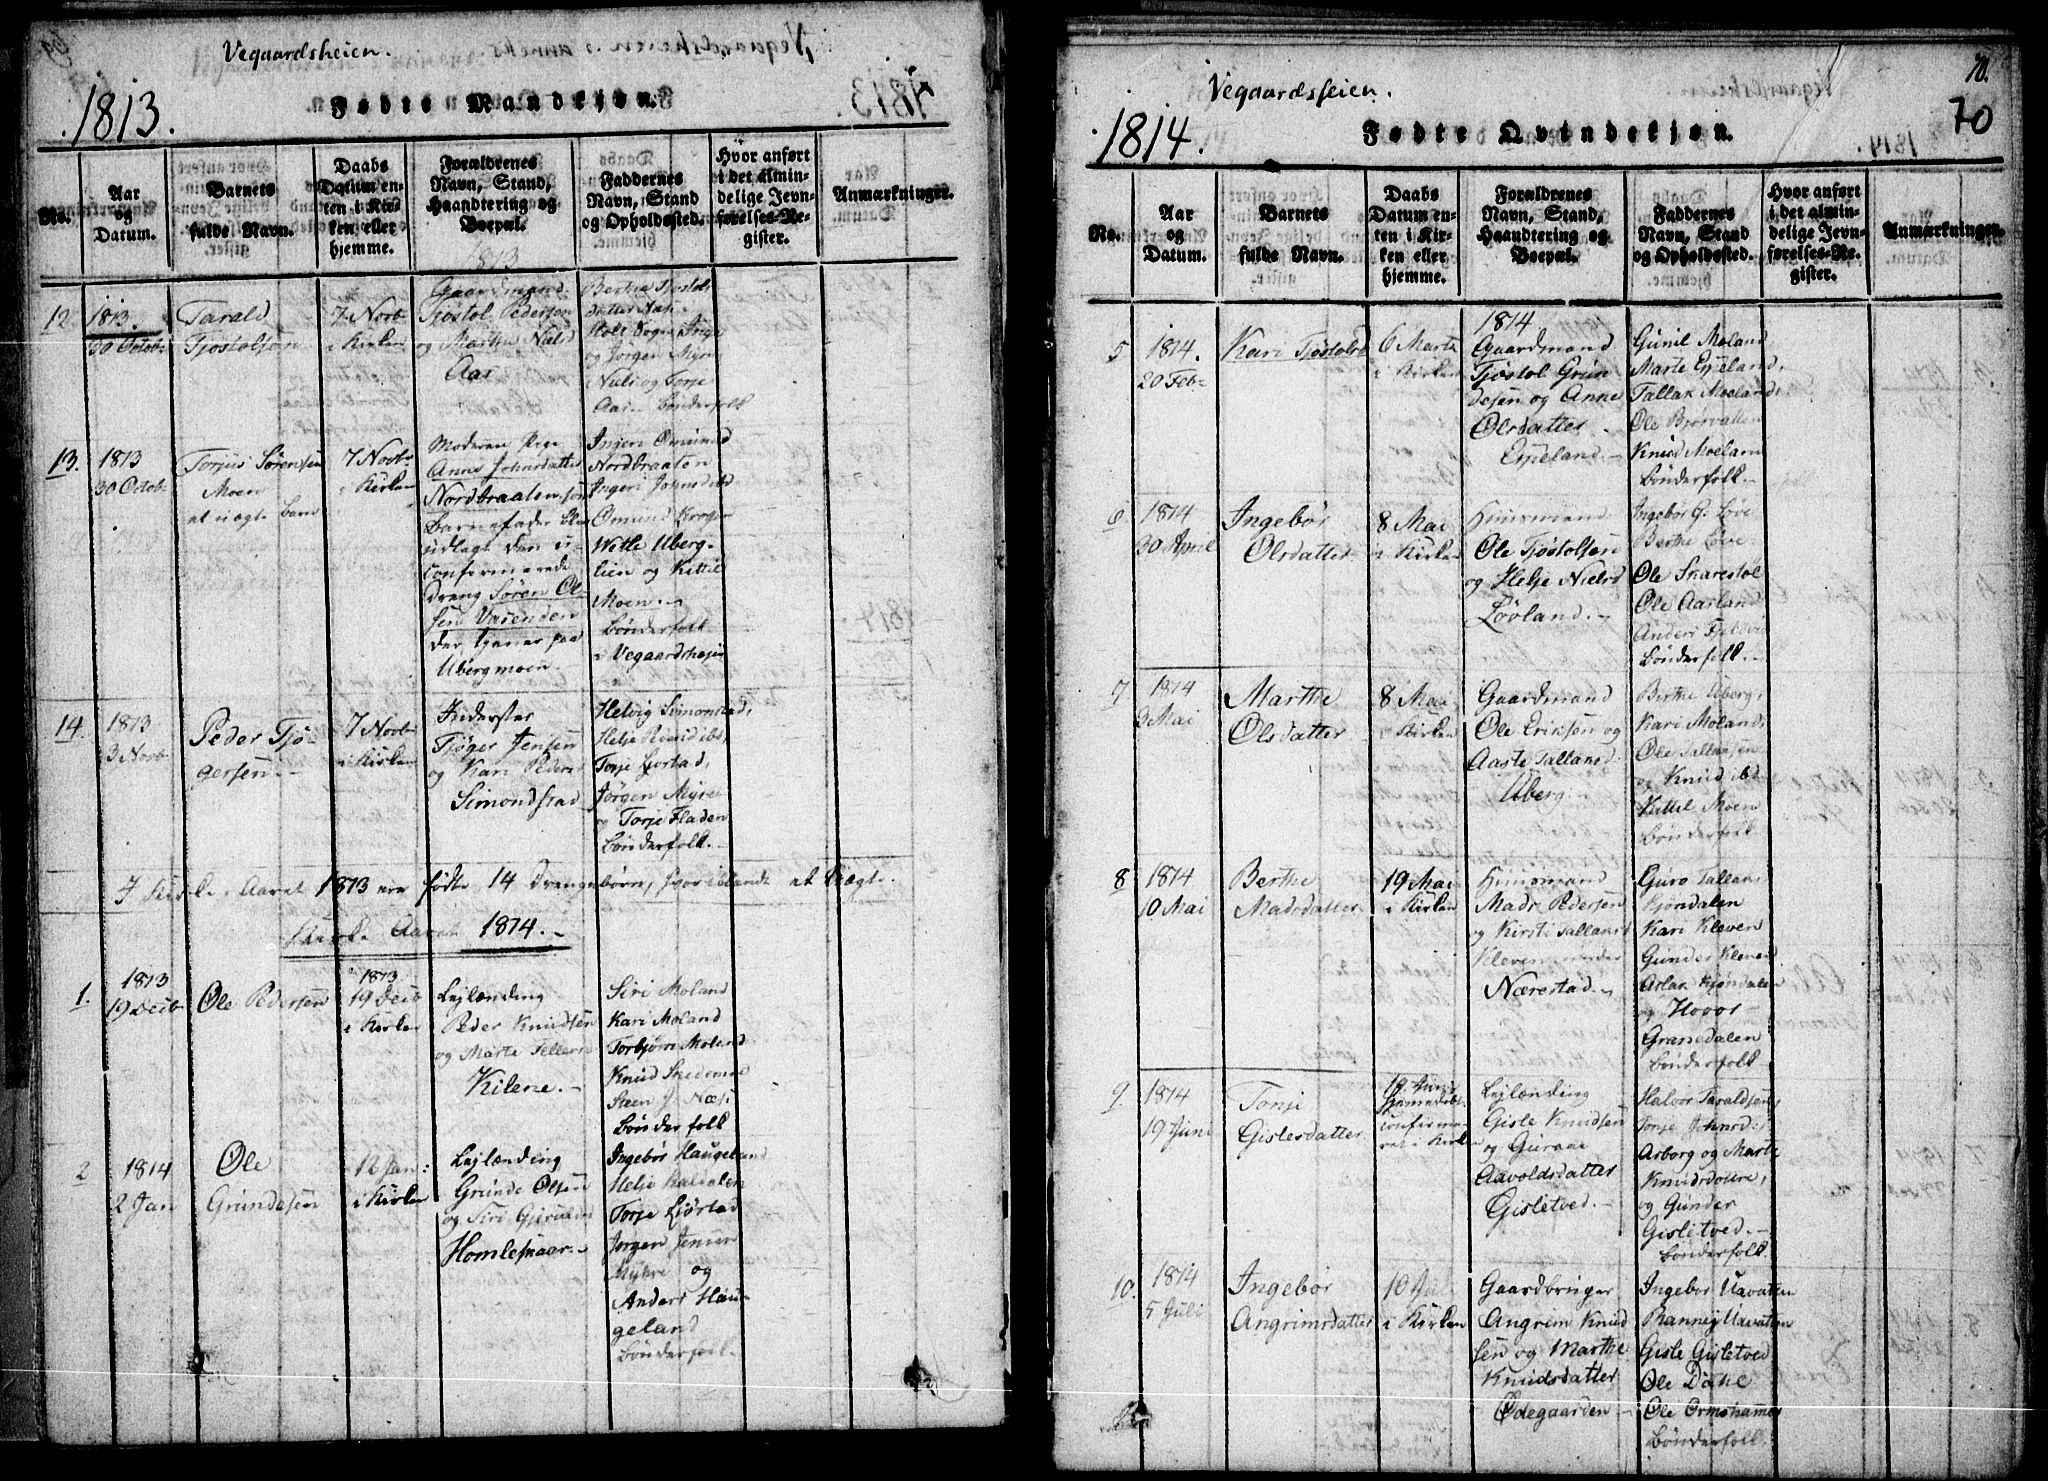 Vegaardsheien.
1813.
Fødte Mandkjøn.
No.
Aar og Datum.
Barnets fulde Navn.
Daabs Datum enten i Kirken eller hjemme.
Forældrenes Navn, Stand, Haandtering og Boepæl.
Faddernes Navn, Stand og Opholdssted.
Hvor anført i det almindelige Jevnførelses-Register.
Anmærkninger.
1813
12
1813.
30 Octob:
Tarald
Tjostolsen
7 Novb
i Kirken
Gaardmand
Tjøstol Pedersen
og Marthe Nielsd
Aas
Berthe Tjostols
datter
og Jørgen Myre
Niels og Torje
Aas. Bønderfolk
13.
1813
30 Octob
Torjus Sørensen
Moen
et uægte Barn
7 Novb
i Kirken
Moderen Pige
Anne Johnsdatter
Nordbraaten som
Barnefader blev
udlagt den u-
confirmerede
dreng Søren Ol-
sen Varenden
der tjener paa
Ubergmoen
Ingeri Omund
Nordbraaten
Ingeri Johnsd ibd
Omund Kroger
Wetle Uberg-
lien og Kittil
Moen.
Bønderfolk
i Vegaardsheien
14.
1813
3 Novb
Peder Tjø-
gersen
7 Novb
i Kirken
Inderster
Tjøger Jensen
og Kari Peders
Simonstad
Helvig Simonstad,
Helje ibd,
Torje Liørstad,
Jørgen Myre
og Torje Fladen
Bønderfolk.
I Kirke-Aaret 1813 ere fødte 14 Drengebørn, hvoriblandt et Uægte.
Kirke Aaret 1814.
1.
1813
19 Decb
Ole Pedersen
1813
19 Decb
i Kirken
Lejlænding
Peder Knudsen
og Marte Tellevs
Kilene.
Siri Moland
Kari Moland
Torbjørn Moland
Knud Skedemoe
Steen J. Næs
Bønderfolk
2
1814
2 Jan
Ole
Grundesen
12 Jan:
i Kirken
Lejlænding
Grunde Olsen
og Siri
Homlesnaar.
Ingebør Haugeland
Helje
Torje Liørstad
Jørgen Jensen
Myhre og
Anders Hau-
geland
Bønderfolk.
Vegaardsheien.
1814.
Fødte Qvindekjøn.
70.
70
No.
Aar og Datum.
Barnets fulde Navn.
Daabs Datum enten i Kirken eller hjemme.
Forældrenes Navn, Stand, Haandtering og Boepæl.
Faddernes Navn, Stand og Opholdssted.
Hvor anført i det almindelige Jevnførelses-Register.
Anmærkninger.
5
1814.
20 Feb
Kari Tjøstolsd
6 Marts
i Kirken
1814
Gaardmand
Tjøstol Grun
desen og Anne
Olsdatter
Espeland.
Gunil Moland
Marte Espeland,
Tallak Moeland,
Ole Bjørvatten
Knud Moeland
Bønderfolk.
6
1814
30 April
Ingebør
Olsdatter
8 Mai
i Kirken
Huusmand
Ole Tjøstolsen
og Helje Nielsd
Løvland.
Ingebør G. Løve
Berthe Løve
Ole Snarestøl
Ole Aasland
Anders
Bønderfolk.
7
1814
3 Mai
Marthe
Olsdatter
8 Mai
i Kirken
Gaardmand
Ole Eriksen og
Aaste Tallaksd:
Uberg
Berthe Uberg,
Kari Moland,
Ole Tallaksen
og Knud ibd
Kittil Moen
Bønderfolk
8
1814
10 Mai
Berthe
Madsdatter
19 Mai
i Kirken
Huusmand
Mads Pedersen
og Kirsti Tallaksd
Kleven under
Nærestad.
Guro Tallaks
Kjøndalen
Kari Kleven
Gunder Kleven
Aslak Kjøndalen
og Hovor
Granedalen
Bønderfolk
9.
1814
19 Juni
Tonje
Gislesdatter
19 Juni
hjemmedøbt
confirme-
ret i Kirken
Lejlænding
Gisle Knudsen
og Guroe
Aavoldsdatter
Gisletved.
Halvor Taraldsen,
Torje Johnsd:
Asborg og Marte
Knudsdøttre,
og Gunder
Gisletved.
Bønderfolk
10.
1814
5 Juli
Ingebør
Angrimsdatter
10 Juli
i Kirken
Gaardbruger
Angrim Knud
sen og Marthe
Knudsdatter
Ødegaarden
Ingebor Uavatten
Rannej Uavatten
Gisle Gisletved
Ole Dahl
Ole Ormshammer
Bønderfolk.